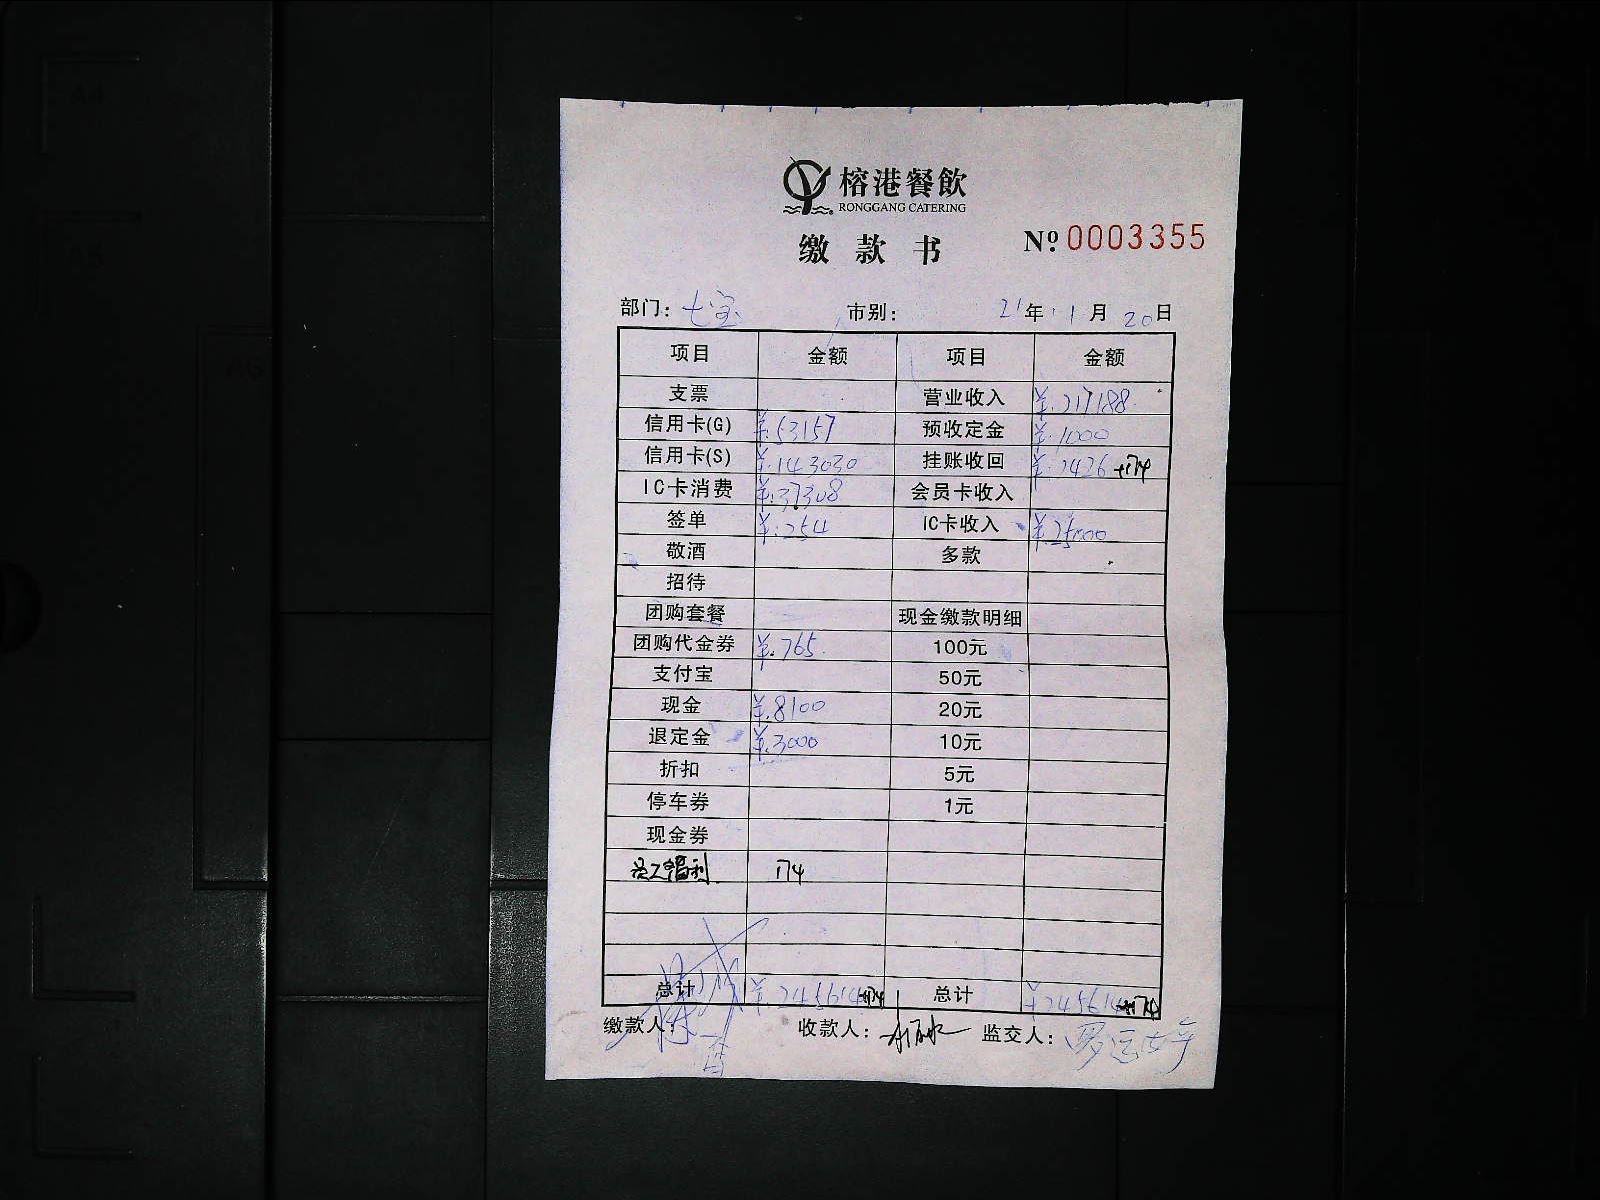 榕港餐飲
RONGGANG CATERING
缴款书 № 0003355
部门: 七宝 市别: 21年 1月 20日
项目 金额 项目 金额
支票 营业收入 ¥.217188
信用卡(G) ¥.53157 预收定金 ¥.1000
信用卡(S) ¥.143030 挂账收回 ¥.2426+174
IC卡消费 ¥.37308 会员卡收入
签单 ¥.254 IC卡收入 ¥.25000
敬酒 多款
招待
团购套餐 现金缴款明细
团购代金券 ¥.765 100元
支付宝 50元
现金 ¥.8100 20元
退定金 ¥.3000 10元
折扣 5元
停车券 1元
现金券
员工福利 174
总计 ¥.245614+174 总计 ¥245614+174
缴款人: 收款人: 监交人: